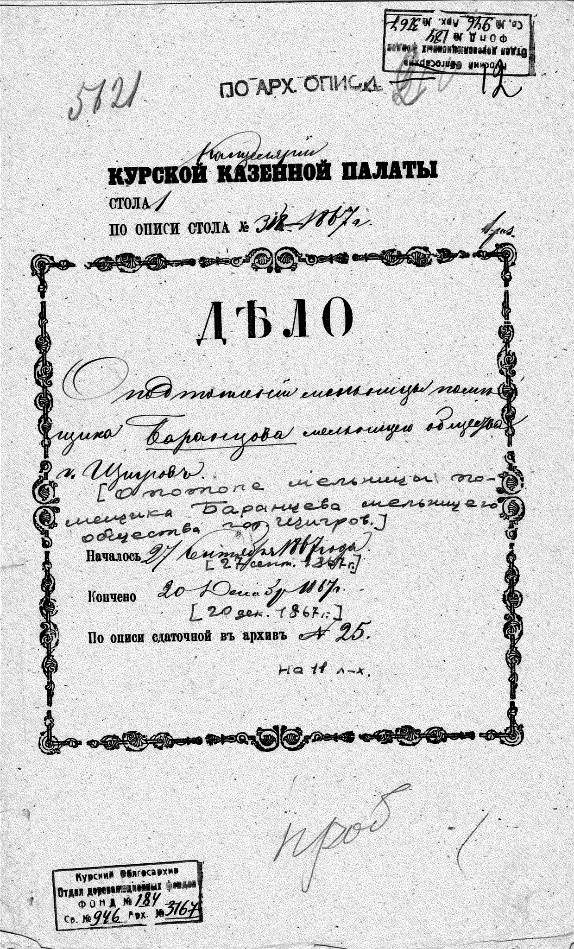 Курский Облгосархив
Отдел дореволюционных фондов
ФОНД № 184
Св. № 946 Арх. № 3167
5821
ПО АРХ. ОПИСИ
12
Канцелярии
КУРСКОЙ КАЗЕННОЙ ПАЛАТЫ
СТОЛА 1
ПО ОПИСИ СТОЛА № 1867 г.
ДѢЛО
О подтоплении мельницы помѣ
щика Баранцова мельницею общества
г. Щигровъ.
[О потопе мельницы по-
мещика Баранцева мельницею
общества гор. Щигров.]
Началось 27 Сентября 1867 года.
[27 сент. 1867 г.]
Кончено 20 Декабря 1867 г.
[20 дек. 1867 г.]
По описи сдаточной въ архивъ № 25.
на 11 л-х.
проб
Курский Облгосархив
Отдел дореволюционных фондов
ФОНД № 184
Св. № 946 Арх. № 3167